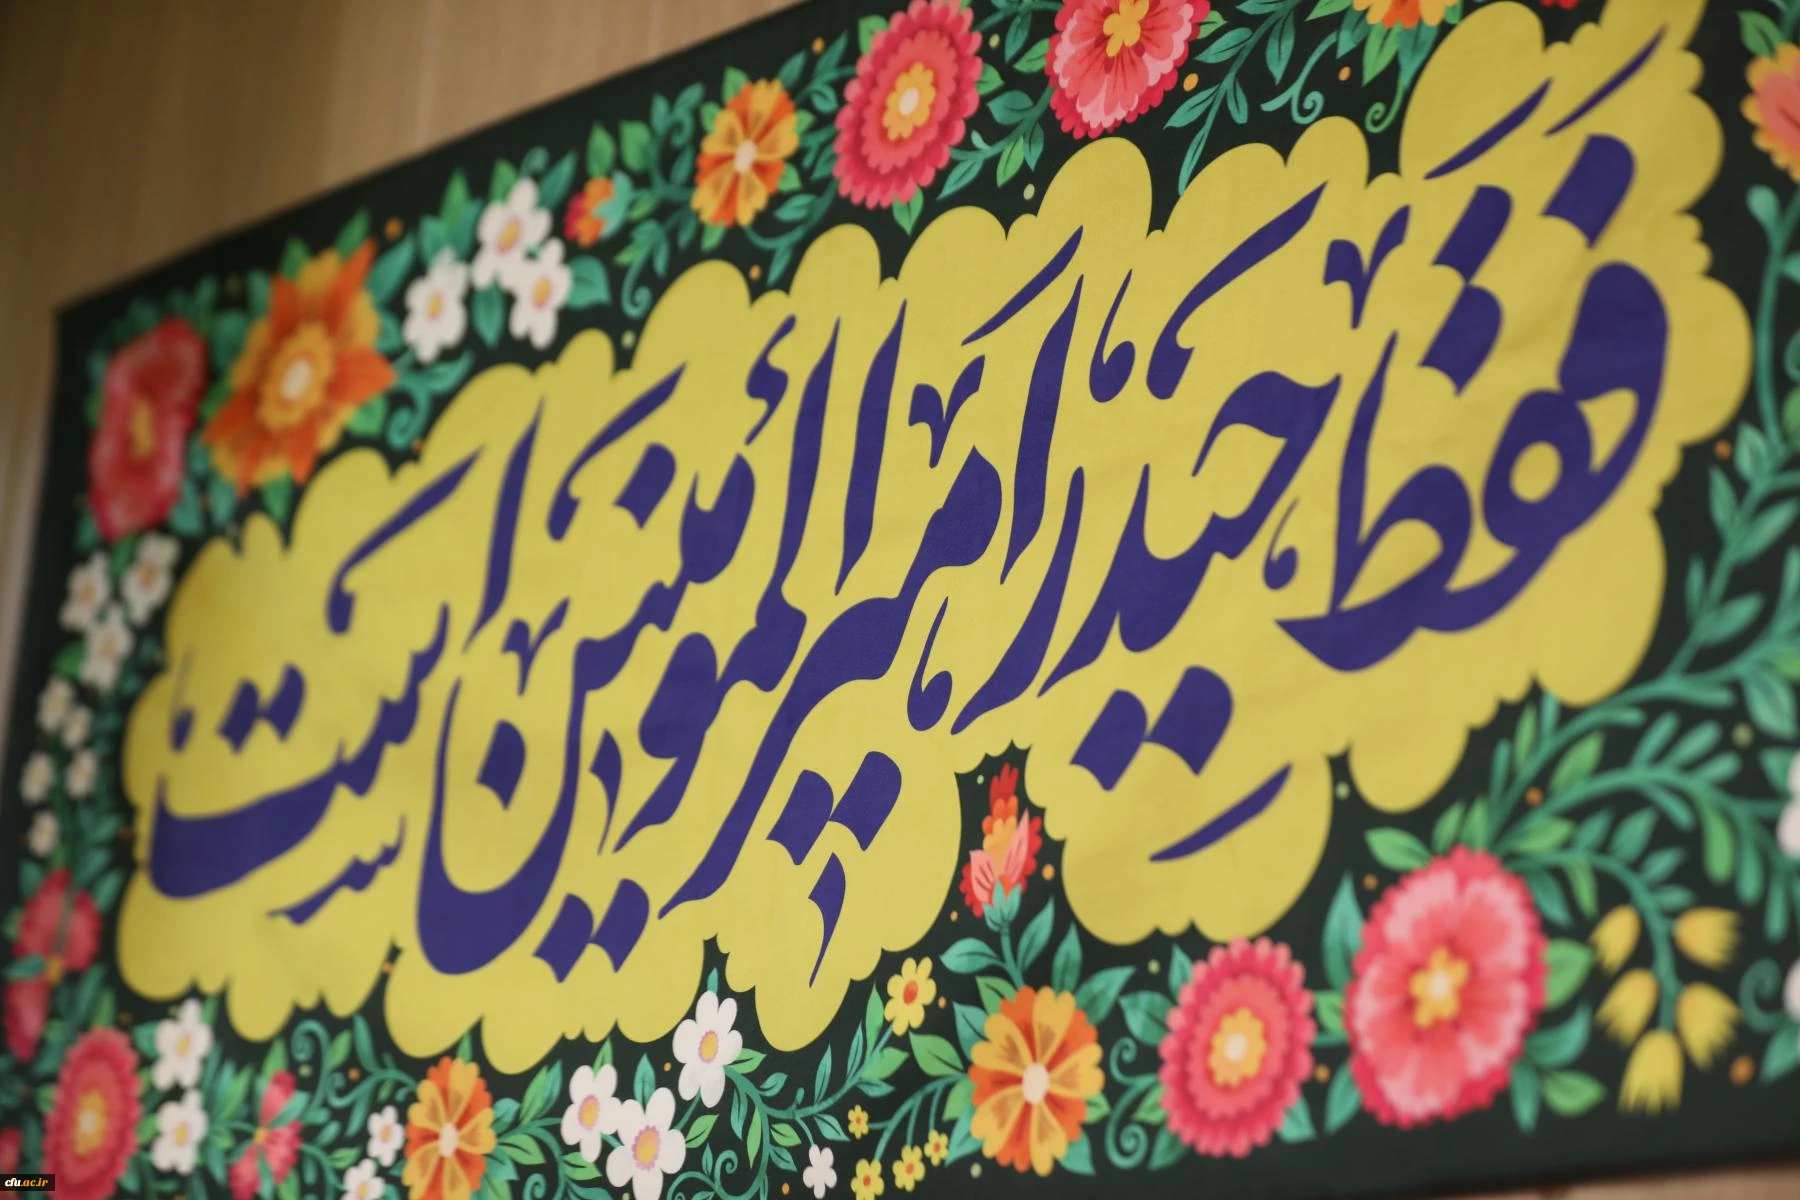 فقط حیدر امیرالمؤمنین است
cfu.ac.ir